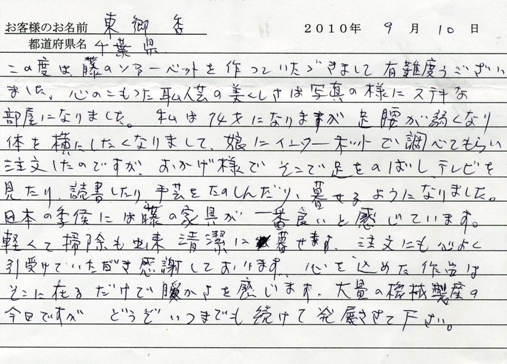 お客様のお名前 東郷 香 2010年 9月 10日
都道府県名 千葉県
この度は藤のソファーベットを作っていただきまして有難度うございい
ました。心のこもった職人芸の美くしさは写真の様にステキな
部屋になりました。私は74才になりますが足腰が弱くなり
体を横にしたくなりまして、娘にインターネットで調べてもらい
注文したのですが おかげ様で そこで足をのばし、テレビを
見たり、読書したり手芸をたのしんだり、暮せるようになりました。
日本の季候には藤の家具が一番良いと感じています。
軽くて掃除も出来 清潔に暮せます。注文にも心よく
引受けていただき感謝しております。心を込めた作品は
そこに在るだけで暖かさを感じます。大量の機械製産の
今日ですが どうぞいつまでも続けて発展させて下さい。